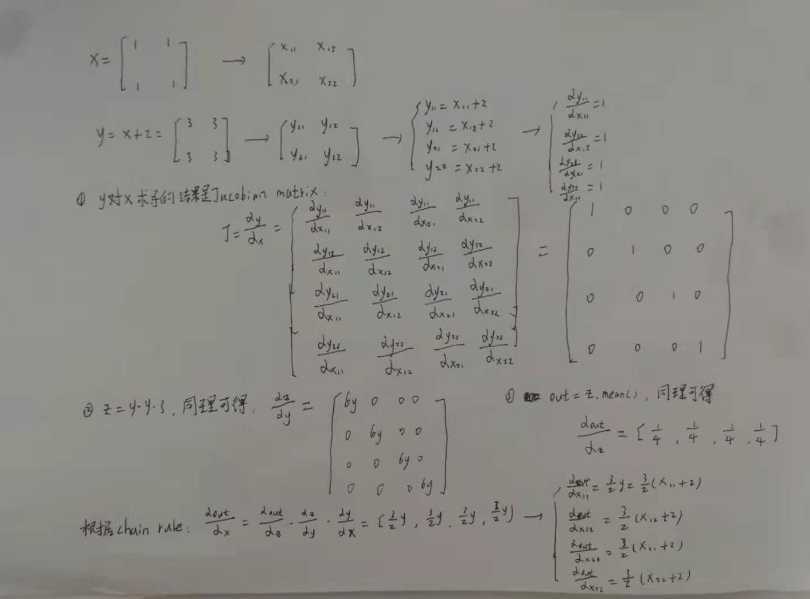 x = [1 1 1 1] → [x₁₁ x₁₂ x₂₁ x₂₂]
y = x+2 = [3 3 3 3] → [y₁₁ y₁₂ y₂₁ y₂₂] → { y₁₁ = x₁₁+2 y₁₂ = x₁₂+2 y₂₁ = x₂₁+2 y₂₂ = x₂₂+2 → { dy₁₁/dx₁₁ = 1 dy₁₂/dx₁₂ = 1 dy₂₁/dx₂₁ = 1 dy₂₂/dx₂₂ = 1
① y对x求导的结果是Jacobian matrix:
J = dy/dx = [ dy₁₁/dx₁₁ dy₁₁/dx₁₂ dy₁₁/dx₂₁ dy₁₁/dx₂₂ = [ 1 0 0 0
dy₁₂/dx₁₁ dy₁₂/dx₁₂ dy₁₂/dx₂₁ dy₁₂/dx₂₂ 0 1 0 0
dy₂₁/dx₁₁ dy₂₁/dx₁₂ dy₂₁/dx₂₁ dy₂₁/dx₂₂ 0 0 1 0
dy₂₂/dx₁₁ dy₂₂/dx₁₂ dy₂₂/dx₂₁ dy₂₂/dx₂₂ ] 0 0 0 1 ]
② z = y·y·3, 同理可得, dz/dy = [ 6y 0 0 0
0 6y 0 0
0 0 6y 0
0 0 0 6y ]
out = z.mean(), 同理可得
dout/dz = [ 1/4, 1/4, 1/4, 1/4 ]
根据chain rule: dout/dx = dout/dz · dz/dy · dy/dx = [ 3/2 y, 3/2 y, 3/2 y, 3/2 y ] → { dout/dx₁₁ = 3/2 y = 3/2 (x₁₁+2)
dout/dx₁₂ = 3/2 (x₁₂+2)
dout/dx₂₁ = 3/2 (x₂₁+2)
dout/dx₂₂ = 3/2 (x₂₂+2)